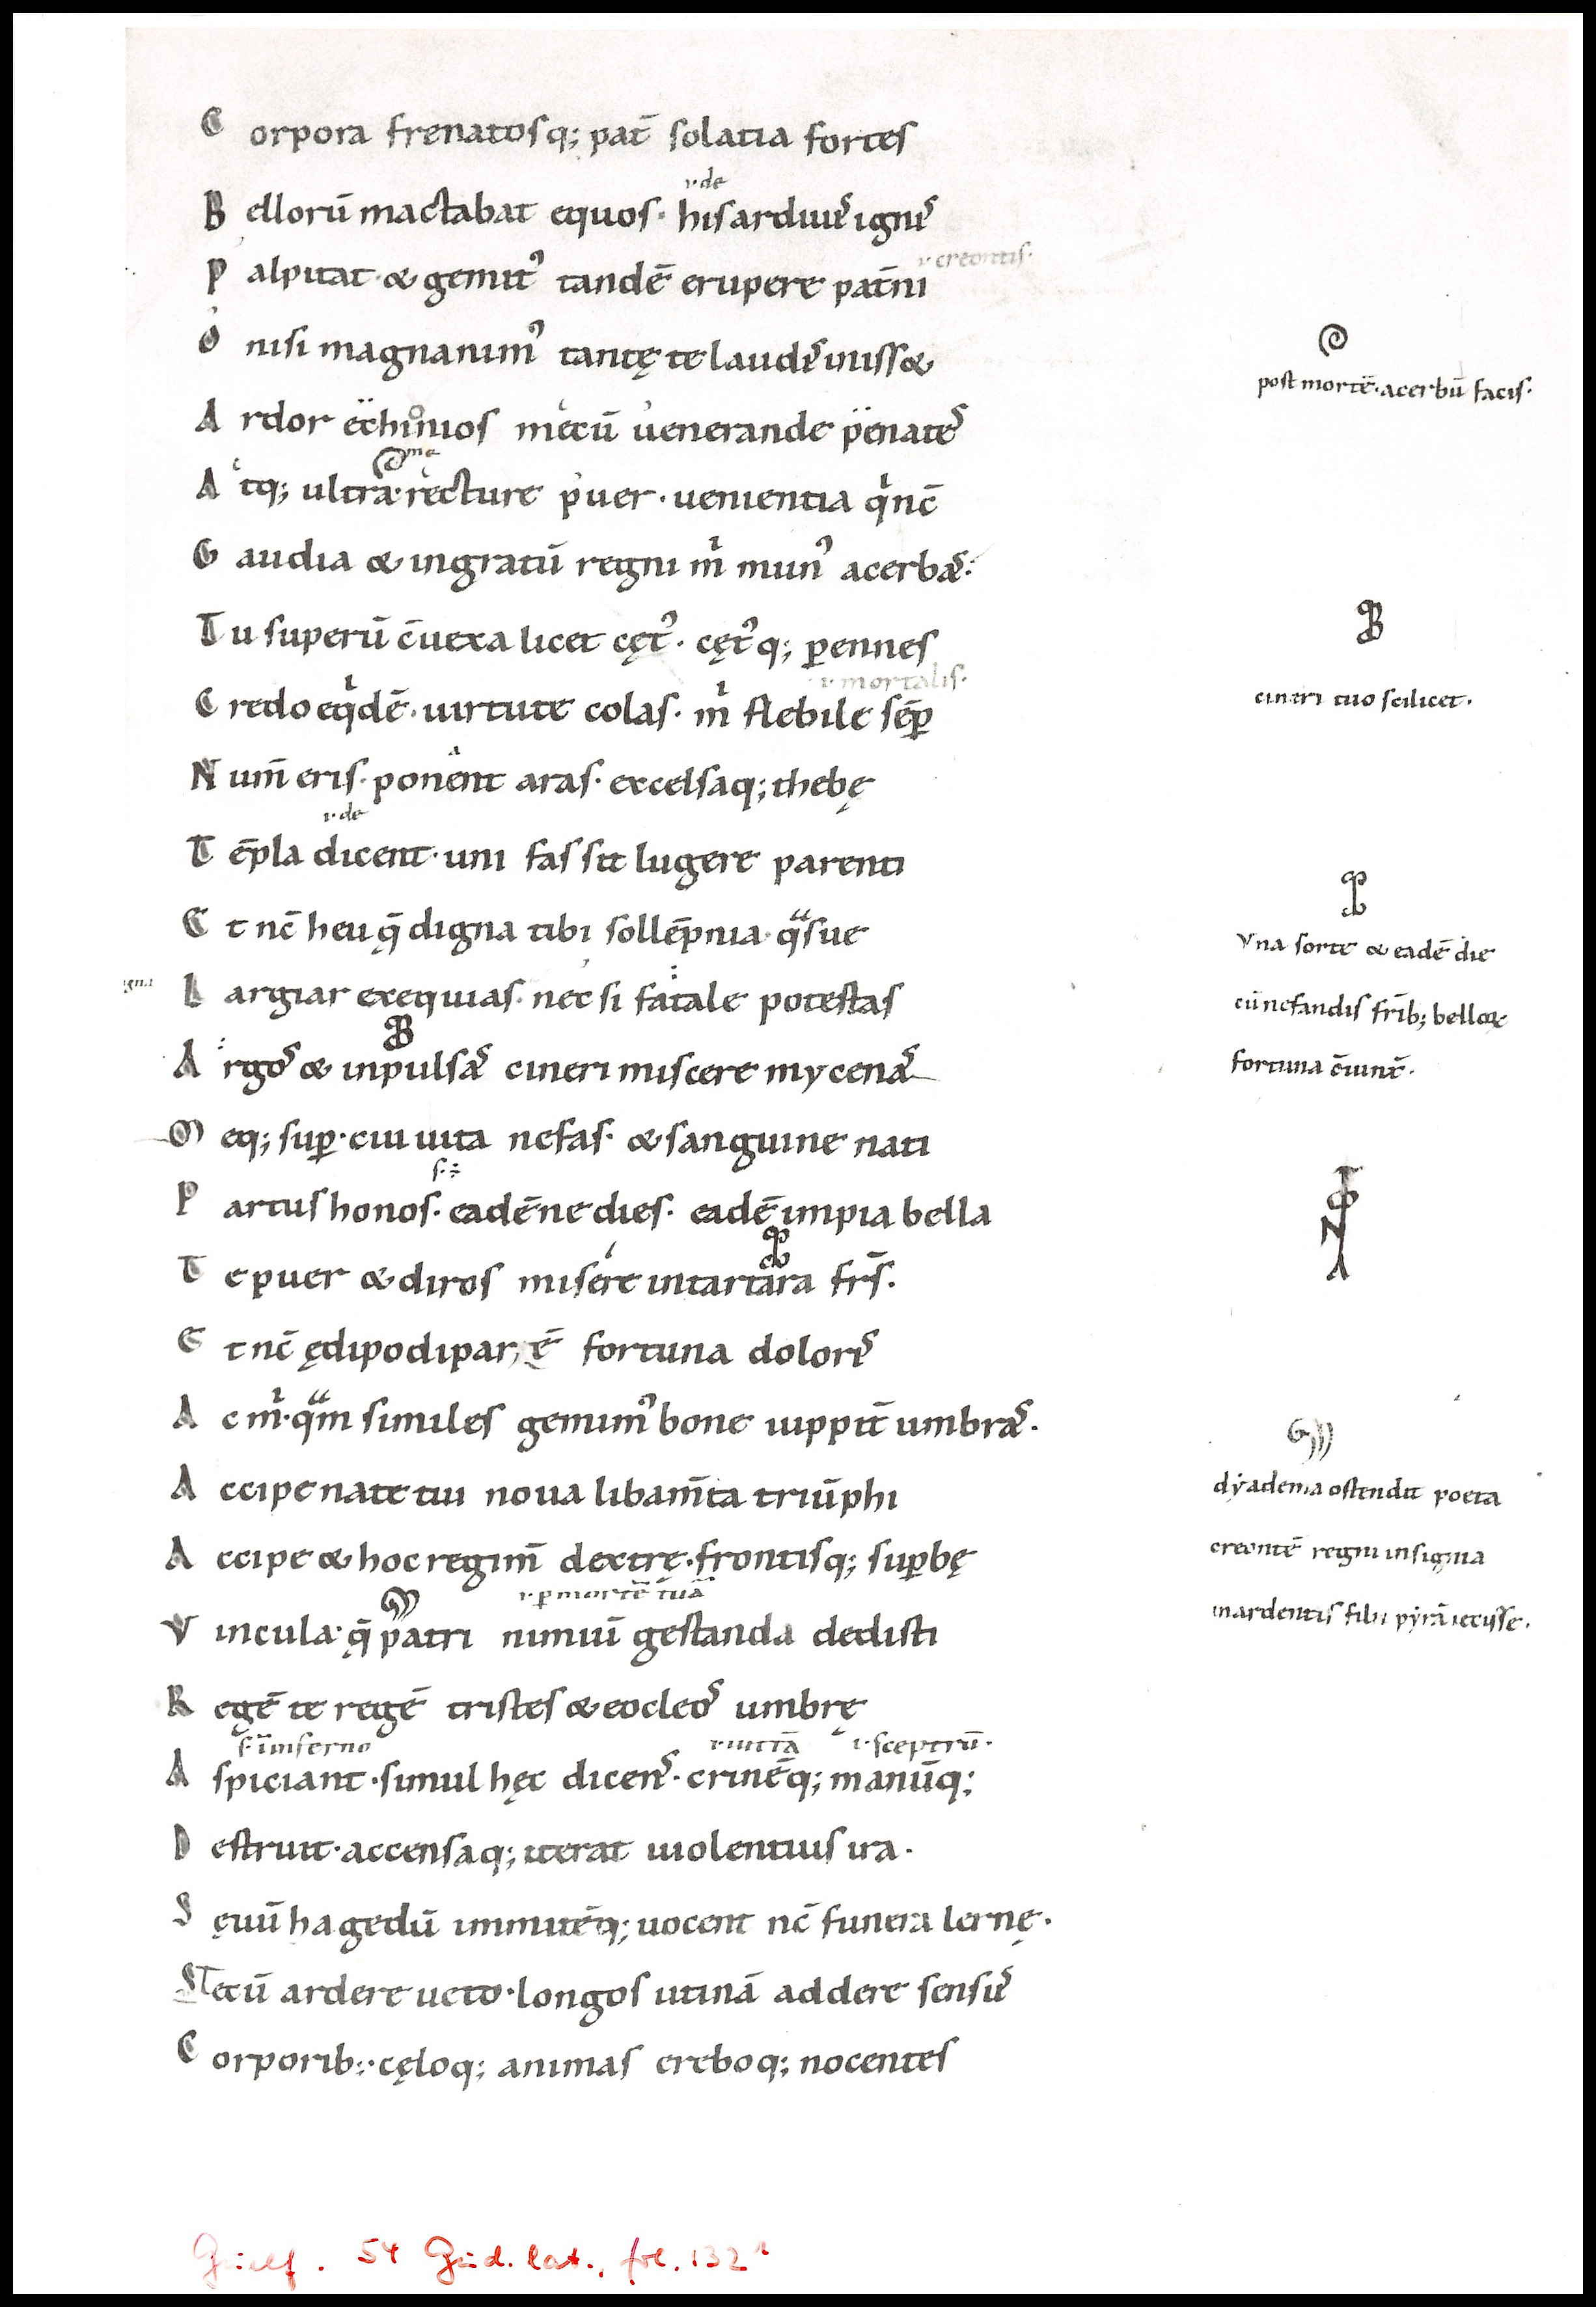 C orpora frenatosq; pat̄ solatia fortes
ı·de
B ellorū mactabat equos· hıs arduuˢ ignıˢ
ı·creontis·
P alpitat· & gemıt᾿ tandē erupere pat̄ni
O nisi magnanim᾿ tantę te laudıˢ inissæ
A rdor echionios mecū uenerande penateˢ
me
A tq; ultra· recture puer· uenientia qͥ nc̄
G audia & ingratū regni mͥ mun᾿ acerbaˢ·
T u superū c̄uexa licet cęt᾿· cęt᾿q; ꝑennes
ı·mortalis·
C redo eqͥdē· uirtute colas· mͥ flebile sēꝑ
N um̄ eris· ponent aras· excelsaq; thebę
ı·de
T ēpla dicent· uni fas sit lugere parenti
E t nc̄ heu q̄ digna tibi sollēpnia· qᵃsue
L argiar exequias· nec si fatale potestas
A rgoˢ & inpulsaˢ cineri miscere mycenaˢ
M eq; suꝑ· cui uita nefas· & sanguine nati
P artus honos· eadē ne dies· eadē impia bella
T e puer & diros misere in tartara fr̄s·
E t nc̄ ędipodi par ē fortuna doloriˢ
A c mͥ· qᵃm similes gemim᾿ bone iuppit̄ umbraˢ·
A ccipe nate tui noua libam̄ta triūphi
A ccipe & hoc regim̄ dextrę· frontisq; suꝑbę
ı·ꝑ mortē tuā
V incula· q̄ patri nimiū gestanda dedisti
R egē te regē tristes & eocleoˢ umbrę
s· ı inferno ı·uittā ı·sceptrū·
A spiciant· simul hęc dicenˢ· crinēq; manūq;
D estruit· accensaq; iterat uiolentius ira·
S ęuū hagedū immitēq; uocent nc̄ funera lernę·
Tecū ardere ueto· longos utinā addere sensuˢ
C orporib;· cęloq; animas ereboq; nocentes
post mortē· acerbū facis·
cineri tuo scilicet·
Vna sorte & eadē die
cū nefandis fr̄ib; belloꝝ
fortuna c̄iunt̄·
dẏadema ostendit poeta
creontē regni insignia
in ardentis filii pẏrā iecisse·
Guelf. 54 Gud. lat., fol. 132ʳ